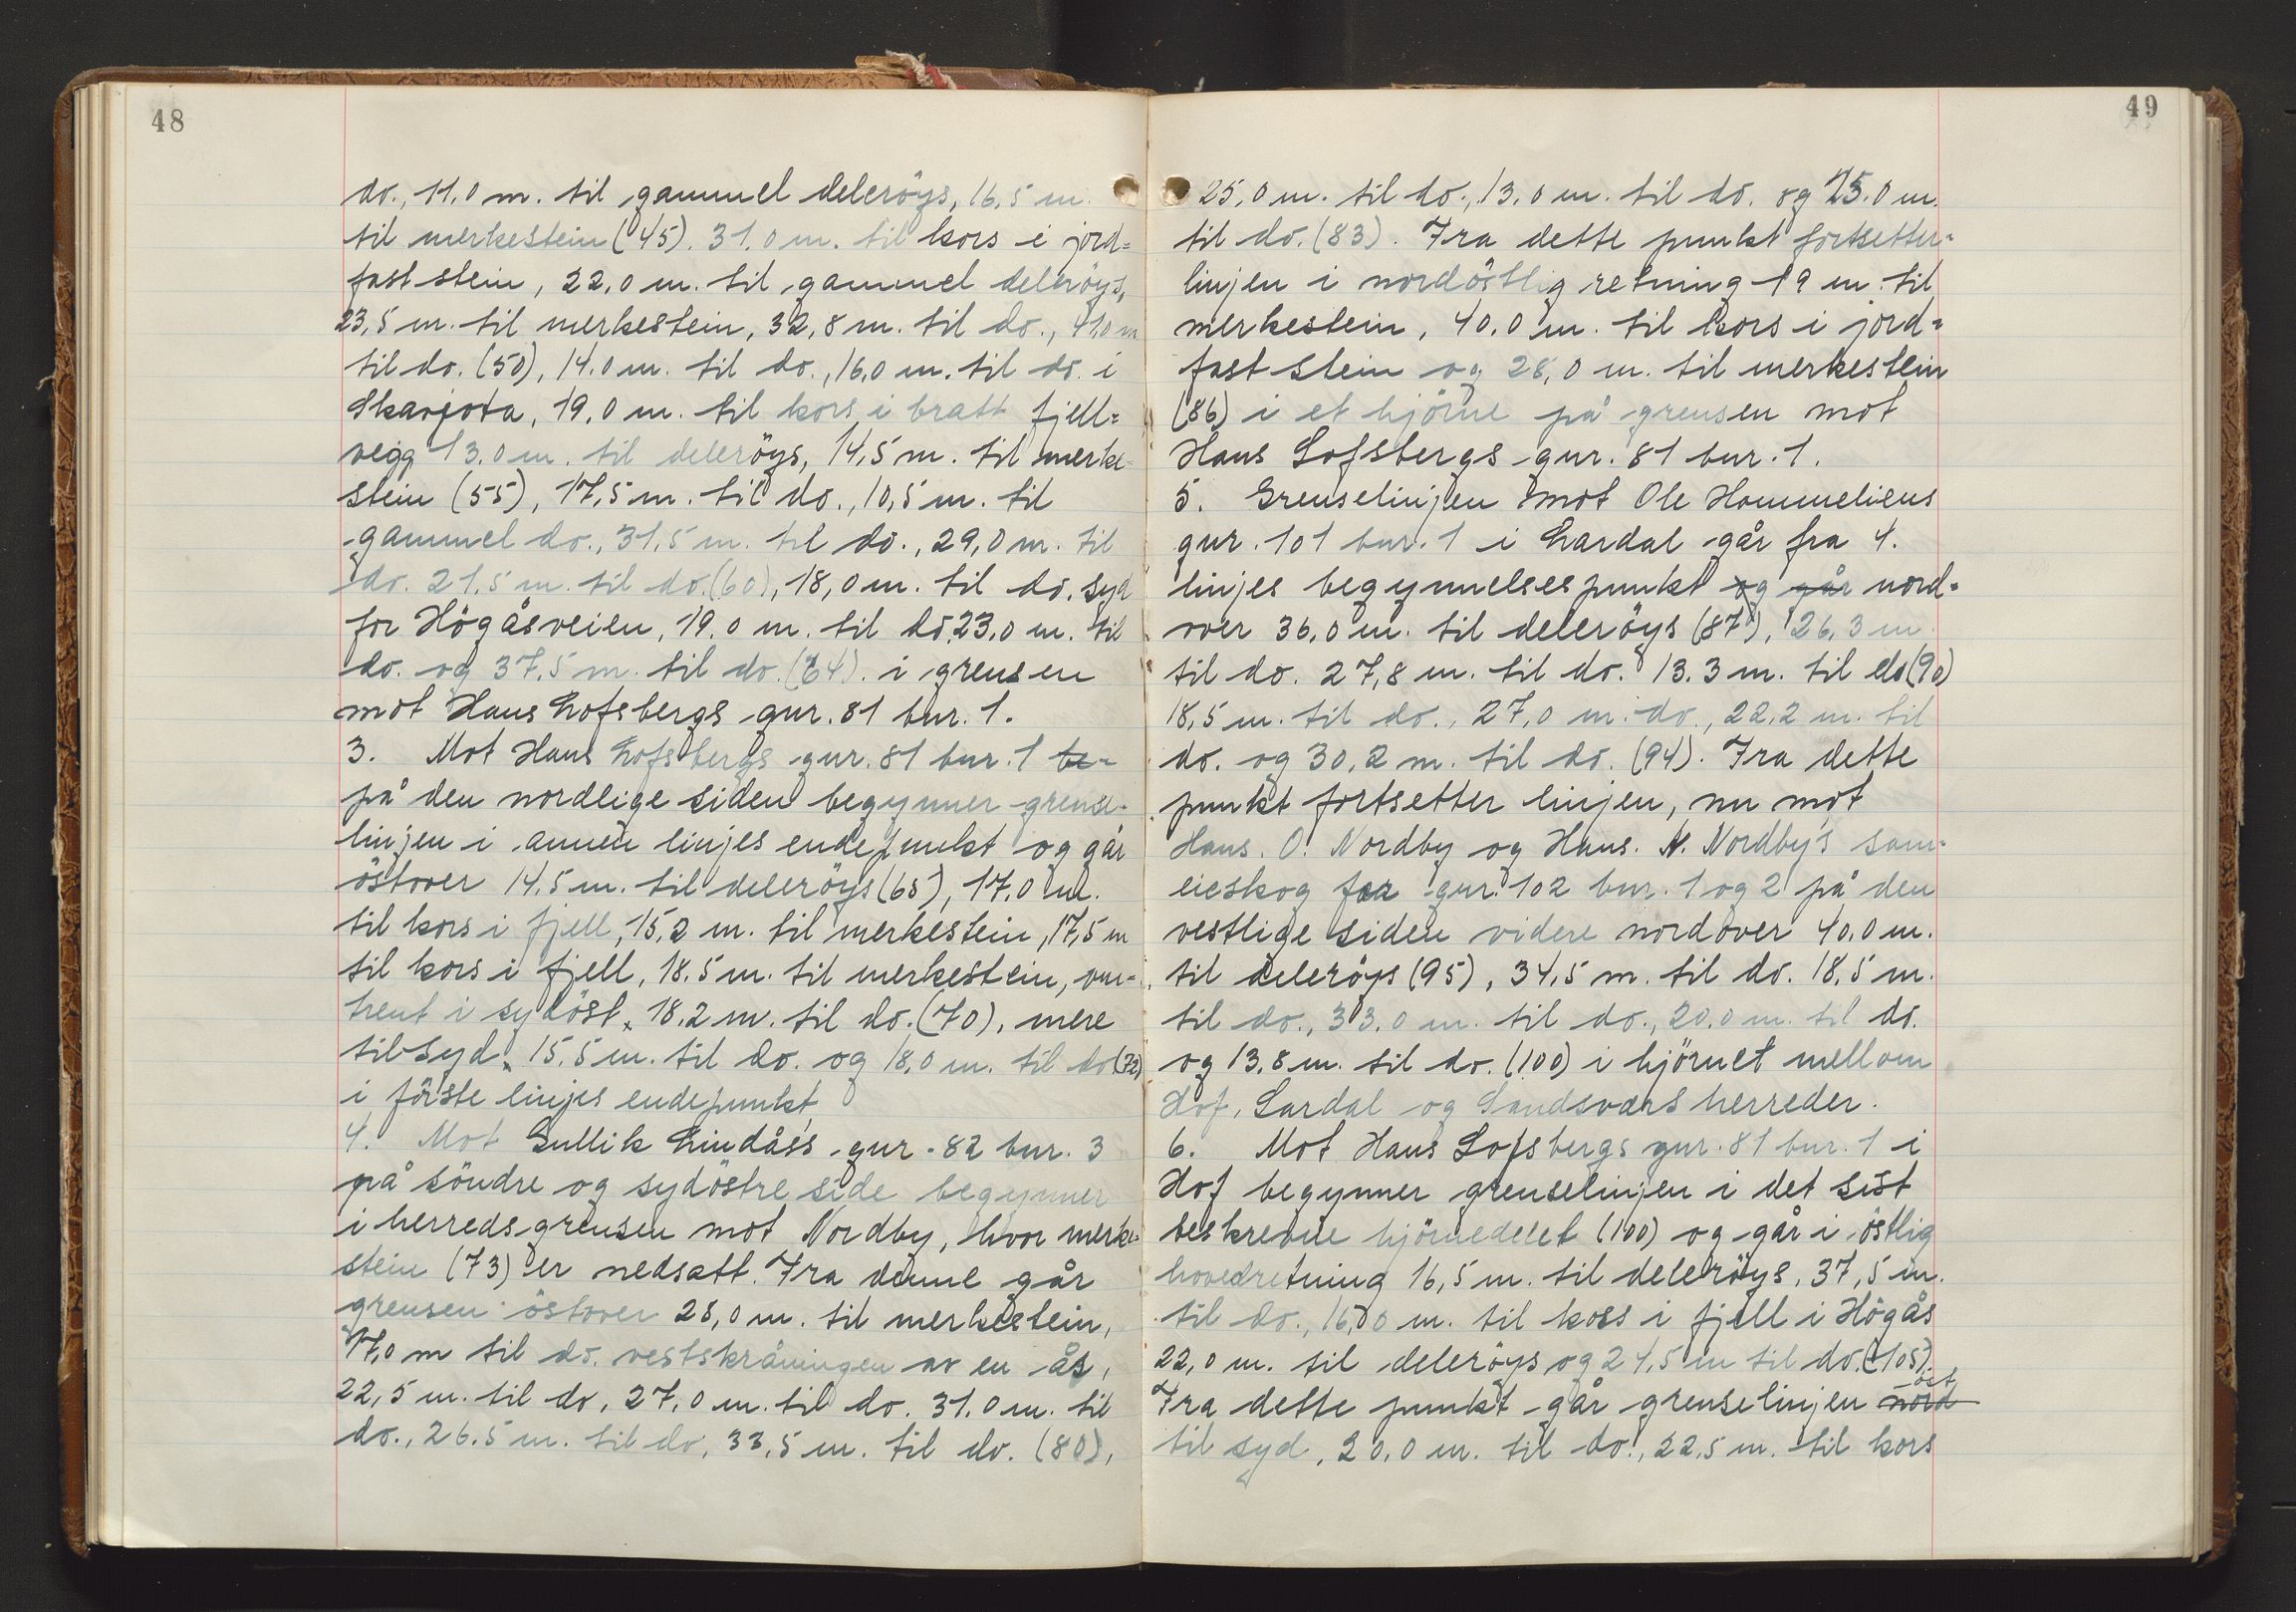 48
do., 11,0 m. til gammel deleröys, 16,5 m.
til merkestein (45). 31,0 m. til kors i jord=
fast stein, 22,0 m. til gammel deleröys,
23,5 m. til merkestein, 32,8 m. til do., 41,0 m
til do. (50), 14,0 m. til do., 16,0 m. til do. i
Skarjota, 19,0 m. til kors i bratt fjell=
vegg 13,0 m. til deleröys, 14,5 m. til merke-
stein (55), 17,5 m. til do., 10,5 m. til
gammel do., 31,5 m. til do., 29,0 m. til
do. 21,5 m. til do. (60), 18,0 m. til do. syd
for Högåsveien, 19,0 m. til do, 23,0 m. til
do. og 37,5 m. til do. (64). i grensen
mot Hans Lofsbergs gnr. 81 bnr. 1.
3. Mot Hans Lofsbergs gnr. 81 bnr. 1 be-
på den nordlige siden begynner grense-
linjen i annen linjes endepunkt og går
östover 14,5 m. til deleröys (65), 17,0 m.
til kors i fjell, 15,2 m. til merkestein, 17,5 m
til kors i fjell, 18,5 m. til merkestein, om-
trent i sydöst, 18,2 m. til do. (70), mere
til syd, 15,5 m. til do. og 18,0 m. til do (72)
i förste linjes endepunkt,
4. Mot Gullik Lindås's gnr. 82 bnr. 3
på söndre og sydöstre side begynner
i herredsgrensen mot Nordby, hvor merke-
stein (73) er nedsatt. Fra denne går
grensen östover 28,0 m. til merkestein,
17,0 m til do. vestskråningen av en ås,
22,5 m. til do, 27,0 m. til do. 31,0 m. til
do., 26,5 m. til do, 33,5 m. til do. (80),
49
25,0 m. til do., 13,0 m. til do. og 25,0 m.
til do. (83). Fra dette punkt fortsetter-
linjen i nordöstlig retning 19 m. til
merkestein, 40,0 m. til kors i jord=
fast stein og 28,0 m. til merkestein
(86) i et hjörne på grensen mot
Hans Lofsbergs gnr. 81 bnr. 1.
5. Grenselinjen mot Ole Hommeliens
gnr. 101 bnr. 1 i Lardal går fra 4.
linjes begynnelsespunkt og går nord=
over 36,0 m. til deleröys (87), 26,3 m
til do. 27,8 m. til do. 13,3 m. til do (90)
18,5 m. til do., 27,0 m. do., 22,2 m. til
do. og 30,2 m. til do. (94). Fra dette
punkt fortsetter linjen, nu mot
Hans. O. Nordby og Hans. N. Nordby's sam-
eieskog for gnr. 102 bnr. 1 og 2 på den
vestlige siden videre nordover 40,0 m.
til deleröys (95), 34,5 m. til do. 18,5 m.
til do., 33,0 m. til do., 20,0 m. til do.
og 13,8 m. til do. (100) i hjörnet mellom
Hof, Lardal og Sandsværs herreder.
6. Mot Hans Lofsbergs gnr. 81 bnr. 1 i
Hof begynner grenselinjen i det sist
beskrevne hjörnedelet (100) og går i östlig
hovedretning 16,5 m. til deleröys, 37,5 m.
til do., 16,0 m. til kors i fjell i Högås
22,0 m. til deleröys og 24,5 m til do. (105).
öst
Fra dette punkt går grenselinjen nord
til syd, 20,0 m. til do., 22,5 m. til kors